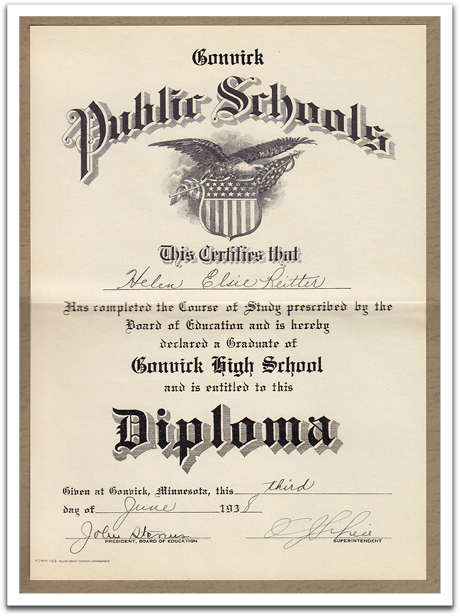 Gonvick
Public Schools
This Certifies that
Helen Elsie Reitter
Has completed the Course of Study prescribed by the
Board of Education and is hereby
declared a Graduate of
Gonvick High School
and is entitled to this
Diploma
Given at Gonvick, Minnesota, this third
day of June 1938
John
PRESIDENT, BOARD OF EDUCATION
SUPERINTENDENT